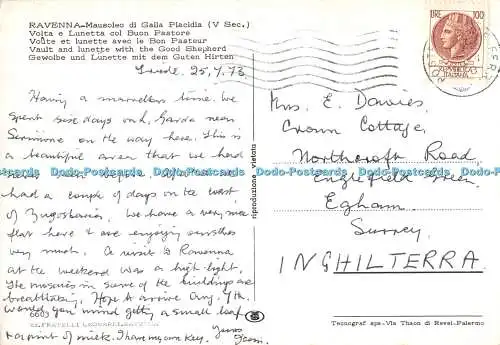 RAVENNA-Mausoleo di Galla Placidia (V Sec.)
Volta e Lunetta col Buon Pastore
Voûte et lunette avec le Bon Pasteur
Vault and lunette with the Good Shepherd
Gewolbe und Lunette mit dem Guten Hirten
25.7.73
Having a marvellous time. We
spent six days on L. Garda near
Sirmione on the way here. This is
a beautiful area that we had
had a couple of days on the coast
of Yugoslavia. We have a very nice
flat here & are enjoying ourselves
very much. A visit to Ravenna
at the weekend was a high-light.
The mosaics in some of the buildings are
breathtaking. Hope to arrive Aug. 7th.
Would you mind getting a small loaf
& a pint of milk. I have my own key.
6603
riproduzione vietata
LIRE 100
ITALIANA
Mrs. E. Davies,
Crown Cottage,
Northcroft Road,
Englefield Green,
Egham,
Surrey,
INGHILTERRA
Tecnograf spa-Via Thaon di Revel-Palermo
Dodo-Postcards Dodo-Postcards Dodo-Postcards Dodo-Postcards